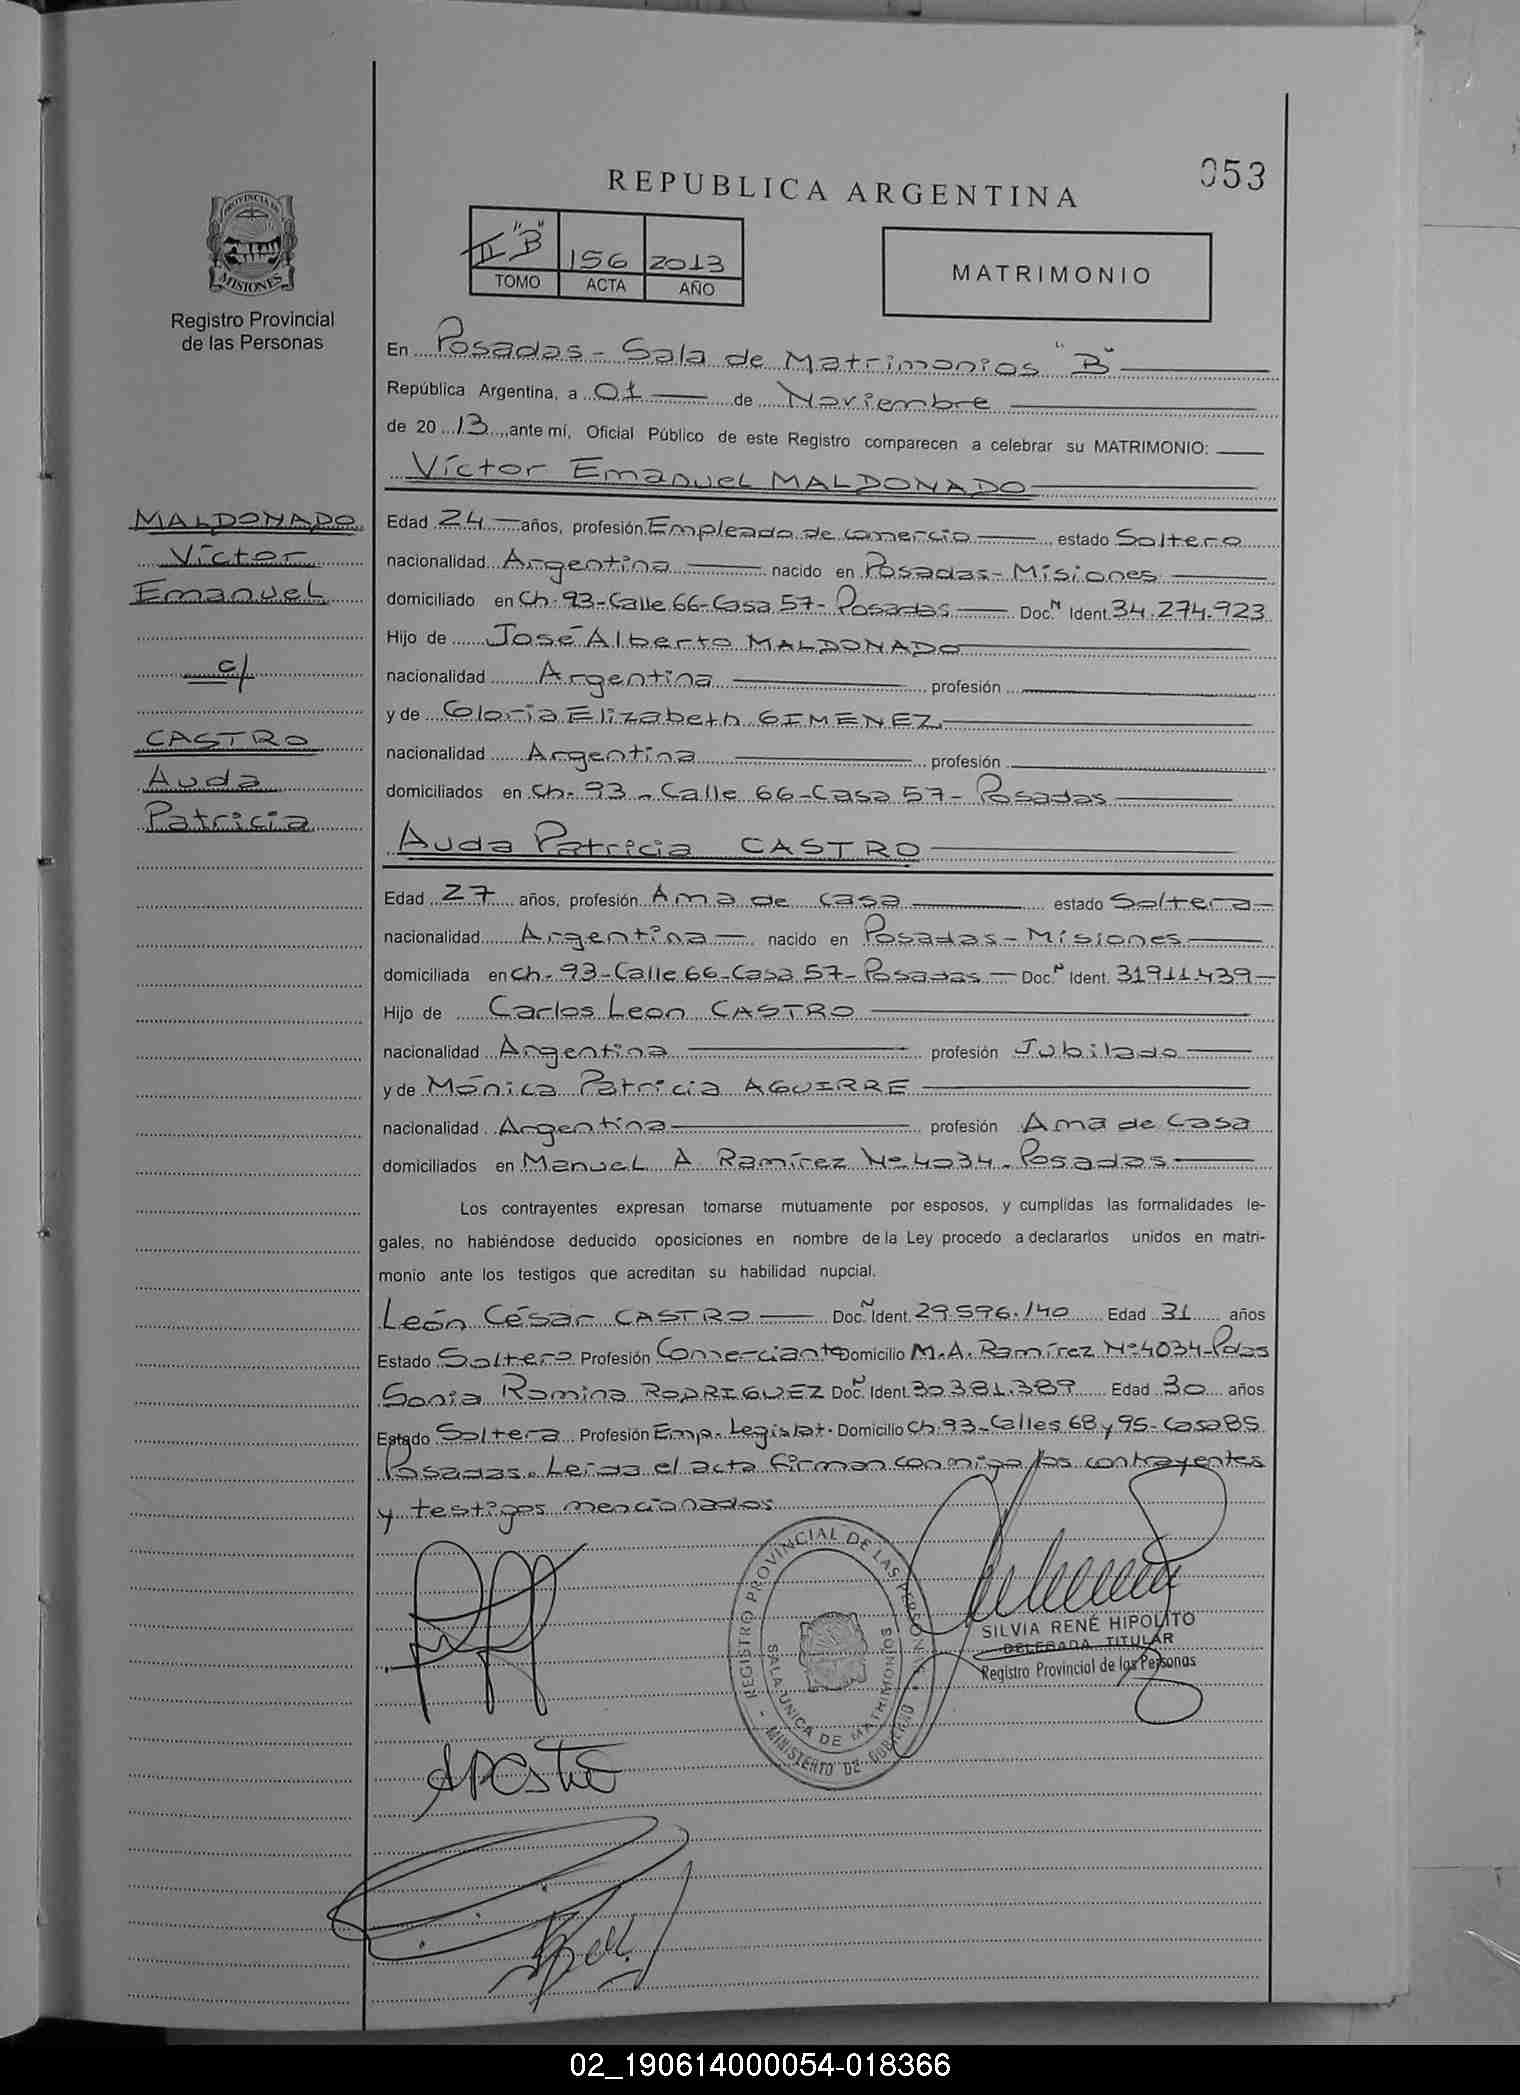 053
REPUBLICA ARGENTINA
II "B" 156 2013
TOMO ACTA AÑO
MATRIMONIO
PROVINCIA DE
MISIONES
Registro Provincial
de las Personas
En Posadas - Sala de Matrimonios "B"
República Argentina, a 01 de Noviembre
de 20 13 ante mí, Oficial Público de este Registro comparecen a celebrar su MATRIMONIO:
Víctor Emanuel MALDONADO
MALDONADO
Víctor
Emanuel
c/
CASTRO
Auda
Patricia
Edad 24 años, profesión Empleado de comercio estado Soltero
nacionalidad Argentina nacido en Posadas - Misiones
domiciliado en Ch. 93 - Calle 66 - Casa 57 - Posadas Doc. N Ident. 34.274.923
Hijo de José Alberto MALDONADO
nacionalidad Argentina profesión
y de Gloria Elizabeth GIMENEZ
nacionalidad Argentina profesión
domiciliados en Ch. 93 - Calle 66 - Casa 57 - Posadas
Auda Patricia CASTRO
Edad 27 años, profesión Ama de casa estado Soltera
nacionalidad Argentina nacido en Posadas - Misiones
domiciliada en Ch. 93 - Calle 66 - Casa 57 - Posadas Doc. N Ident. 31911.439
Hijo de Carlos Leon CASTRO
nacionalidad Argentina profesión Jubilado
y de Mónica Patricia AGUIRRE
nacionalidad Argentina profesión Ama de Casa
domiciliados en Manuel A Ramírez Nº 4034 - Posadas
Los contrayentes expresan tomarse mutuamente por esposos, y cumplidas las formalidades le-
gales, no habiéndose deducido oposiciones en nombre de la Ley procedo a declararlos unidos en matri-
monio ante los testigos que acreditan su habilidad nupcial.
León César CASTRO Doc. N Ident. 29.596.140 Edad 31 años
Estado Soltero Profesión Comerciante Domicilio M.A. Ramírez Nº 4034 - Pdas
Sonia Romina RODRIGUEZ Doc. N Ident. 30.381.389 Edad 30 años
Estado Soltera Profesión Emp. Legislat. Domicilio Ch. 93 - Calles 68 y 95 - Casa 85
Posadas. Leída el acta firman conmigo los contrayentes
y testigos mencionados
REGISTRO PROVINCIAL DE LAS PERSONAS
SALA UNICA DE MATRIMONIOS
- MINISTERIO DE GOBIERNO
SILVIA RENÉ HIPOLITO
DELEGADA TITULAR
Registro Provincial de las Personas
02_190614000054-018366